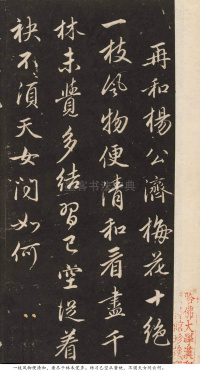 再和楊公濟梅花十絶
一枝風物便清和看盡千
林未覺多結習已空從着
袂不須天女問如何
一枝風物便清和，看尽千林未觉多。结习已空从着袂，不须天女问如何。